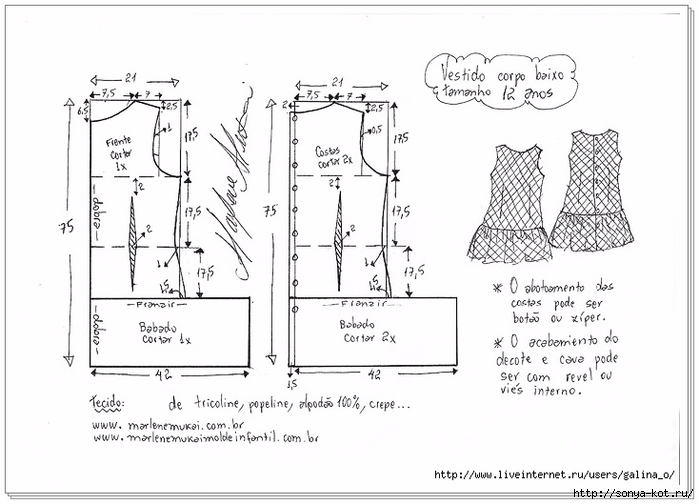 Vestido corpo baixo
tamanho 12 anos
21
7,5 7
6,5
2,5
1
17,5
Frente
cortar
1x
2
17,5
dobra
75
2
1
17,5
1,5
Franzir
dobra
Babado
cortar 1x
42
21
7,5 7
2
2,5
0,5
17,5
Costas
cortar 2x
2
17,5
75
2
1
17,5
1,5
Franzir
Babado
cortar 2x
1,5
42
* O abotoamento das
costas pode ser
botão ou zíper.
* O acabamento do
decote e cava pode
ser com revel ou
viés interno.
Tecido: de tricoline, popeline, algodão 100%, crepe...
www.marlenemukai.com.br
www.marlenemukaimoldeinfantil.com.br
http://www.liveinternet.ru/users/galina_o/
http://sonya-kot.ru/